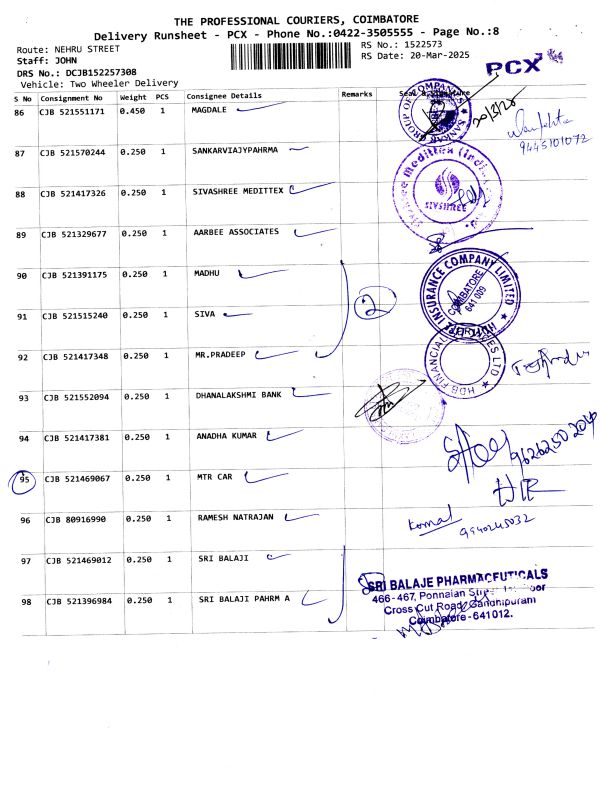 THE PROFESSIONAL COURIERS, COIMBATORE
Delivery Runsheet - PCX - Phone No.:0422-3505555 - Page No.:8
Route: NEHRU STREET
RS No.: 1522573
Staff: JOHN
RS Date: 20-Mar-2025
PCX
DRS No.: DCJB152257308
Vehicle: Two Wheeler Delivery
S No Consignment No Weight PCS Consignee Details Remarks Seal & Signature
86 CJB 521551171 0.450 1 MAGDALE
GROUP OF COMPANIES
20/3/25
9445101072
87 CJB 521570244 0.250 1 SANKARVIAJYPAHRMA
88 CJB 521417326 0.250 1 SIVASHREE MEDITTEX
SIVSHREE
89 CJB 521329677 0.250 1 AARBEE ASSOCIATES
90 CJB 521391175 0.250 1 MADHU
2
INSURANCE COMPANY LIMITED
COIMBATORE
641 009
91 CJB 521515240 0.250 1 SIVA
92 CJB 521417348 0.250 1 MR.PRADEEP
HDB FINANCIAL SERVICES LTD
93 CJB 521552094 0.250 1 DHANALAKSHMI BANK
94 CJB 521417381 0.250 1 ANADHA KUMAR
95 CJB 521469067 0.250 1 MTR CAR
96 CJB 80916990 0.250 1 RAMESH NATRAJAN
Komal
9940245032
97 CJB 521469012 0.250 1 SRI BALAJI
98 CJB 521396984 0.250 1 SRI BALAJI PAHRM A
SRI BALAJE PHARMACEUTICALS
466-467, Ponnaian
Cross Cut Road, Gandhipuram
Coimbatore - 641012.